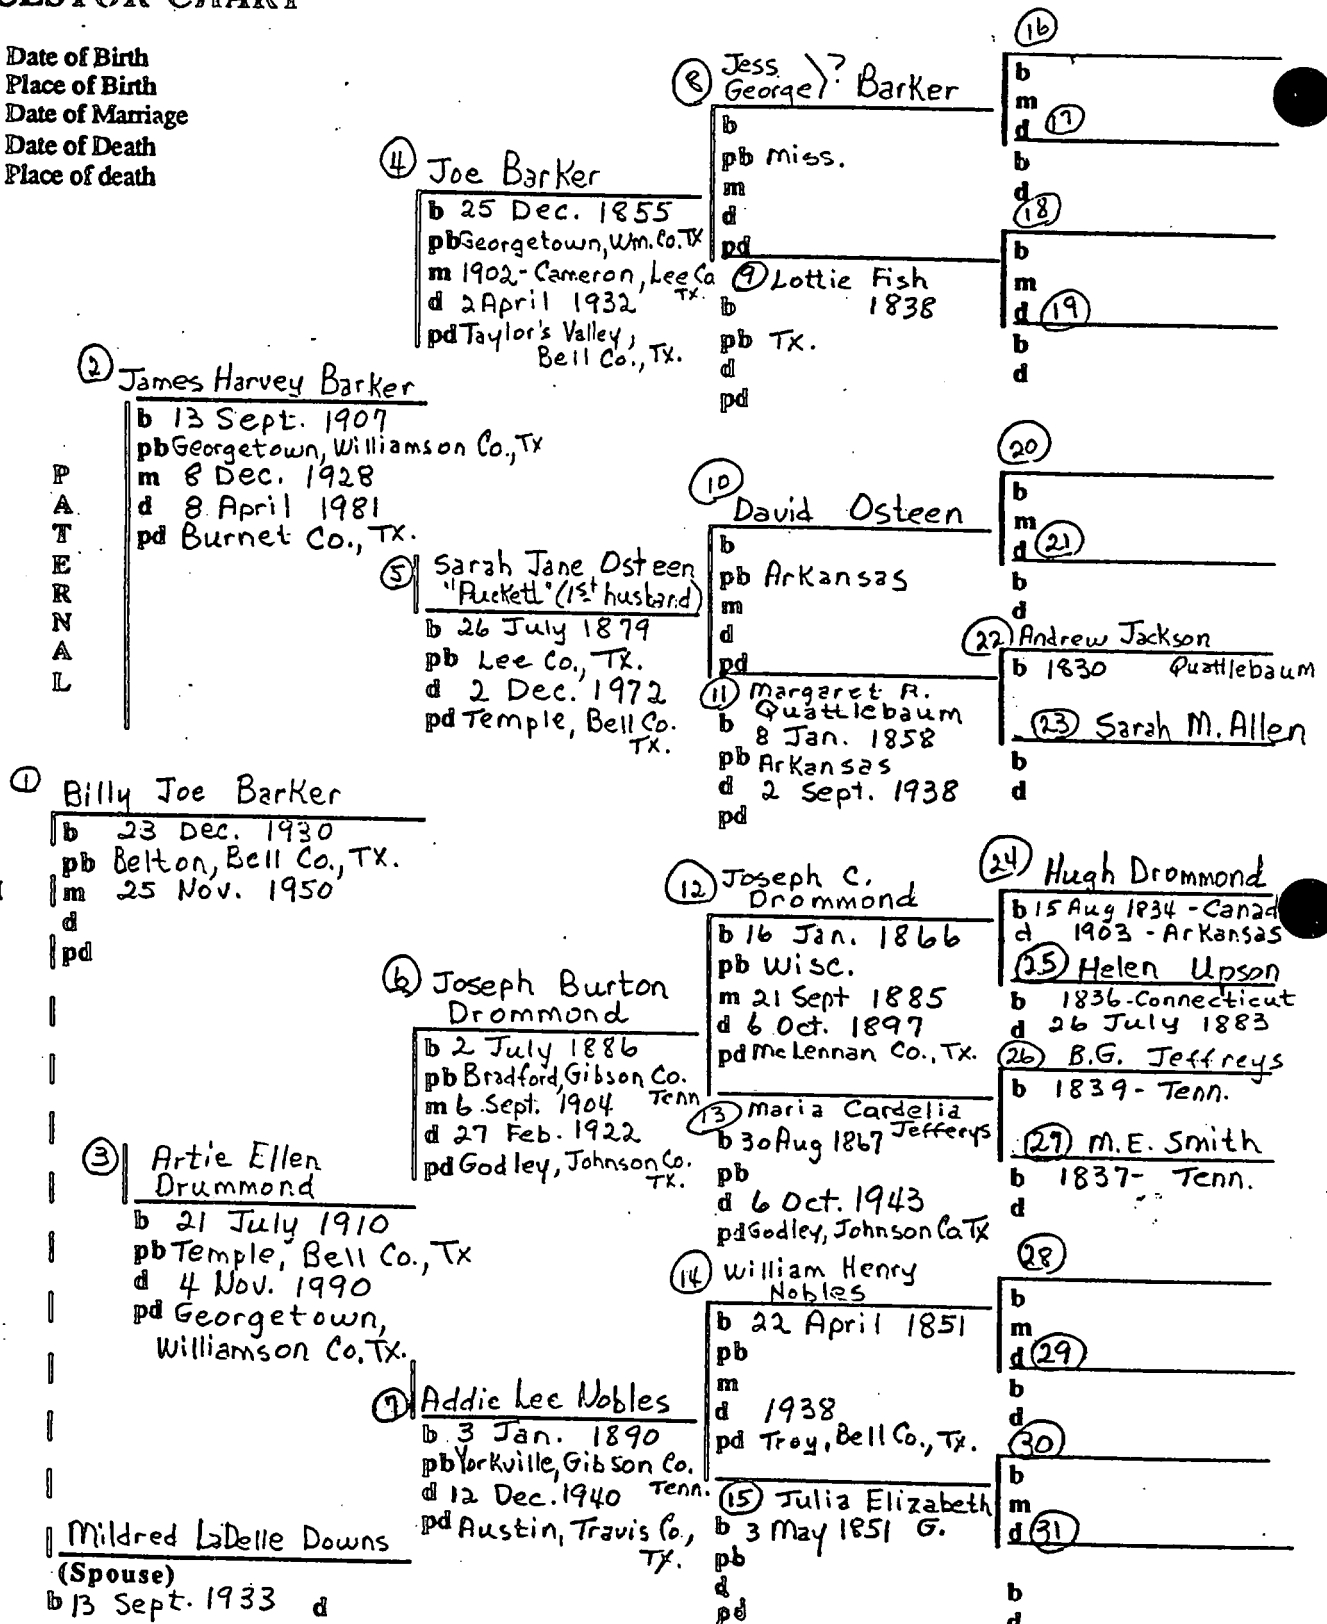 CESTOR CHART
Date of Birth
Place of Birth
Date of Marriage
Date of Death
Place of death
P
A
T
E
R
N
A
L
① Billy Joe Barker
b 23 Dec. 1930
pb Belton, Bell Co., TX.
m 25 Nov. 1950
d
pd
Mildred LaDelle Downs
(Spouse)
b 13 Sept. 1933 d
② James Harvey Barker
b 13 Sept. 1907
pb Georgetown, Williamson Co., TX
m 8 Dec. 1928
d 8 April 1981
pd Burnet Co., TX.
③ Artie Ellen
Drummond
b 21 July 1910
pb Temple, Bell Co., TX
d 4 Nov. 1990
pd Georgetown,
Williamson Co, TX.
④ Joe Barker
b 25 Dec. 1855
pb Georgetown, Wm. Co. TX
m 1902 - Cameron, Lee Co
TX.
d 2 April 1932
pd Taylor's Valley,
Bell Co., TX.
⑤ Sarah Jane Osteen
"Puckett" (1st husband)
b 26 July 1879
pb Lee Co., TX.
d 2 Dec. 1972
pd Temple, Bell Co.
TX.
⑥ Joseph Burton
Drommond
b 2 July 1886
pb Bradford, Gibson Co.
Tenn
m 6 Sept. 1904
d 27 Feb. 1922
pd Godley, Johnson Co.
TX.
⑦ Addie Lee Nobles
b 3 Jan. 1890
pb Yorkville, Gibson Co.
Tenn.
d 12 Dec. 1940
pd Austin, Travis Co.,
TX.
⑧ Jess
George )? Barker
b
pb Miss.
m
d
pd
⑨ Lottie Fish
b 1838
pb TX.
d
pd
⑩ David Osteen
b
pb Arkansas
m
d
pd
⑪ Margaret R.
Quattlebaum
b 8 Jan. 1858
pb Arkansas
d 2 Sept. 1938
pd
⑫ Joseph C.
Drommond
b 16 Jan. 1866
pb Wisc.
m 21 Sept 1885
d 6 Oct. 1897
pd McLennan Co., TX.
⑬ Maria Cardelia
Jefferys
b 30 Aug 1867
pb
d 6 Oct. 1943
pd Godley, Johnson Co TX
⑭ William Henry
Nobles
b 22 April 1851
pb
m
d 1938
pd Troy, Bell Co., TX.
⑮ Julia Elizabeth
G.
b 3 May 1851
pb
d
pd
⑯
b
m
d ⑰
b
d
⑱
b
m
d ⑲
b
d
⑳
b
m
d ㉑
b
d
㉒ Andrew Jackson
Quattlebaum
b 1830
㉓ Sarah M. Allen
b
d
㉔ Hugh Drommond
b 15 Aug 1834 - Canad
d 1903 - Arkansas
㉕ Helen Upson
b 1836 - Connecticut
d 26 July 1883
㉖ B.G. Jeffreys
b 1839 - Tenn.
㉗ M.E. Smith
b 1837 - Tenn.
d
㉘
b
m
d ㉙
b
d
㉚
b
m
d ㉛
b
d